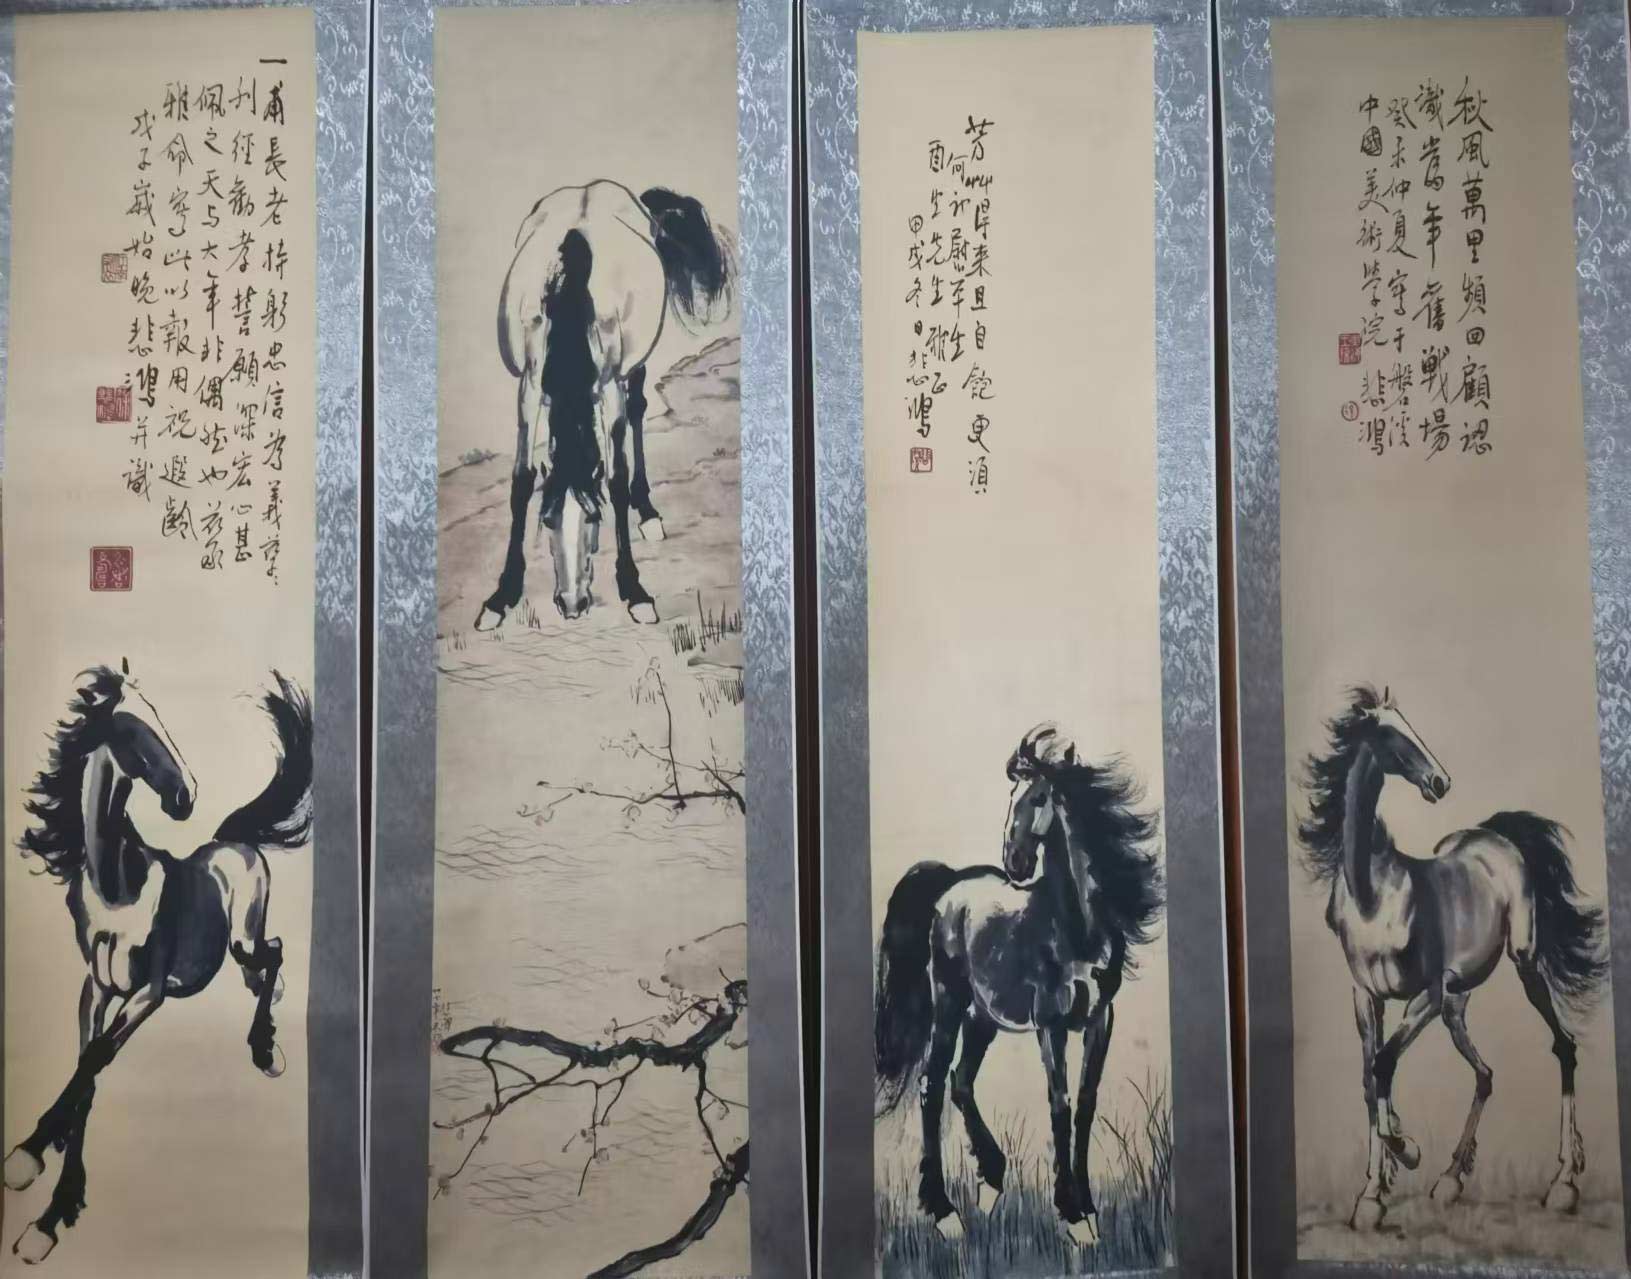 一甫長老持躬忠信為義慈
利經勸孝誓願深宏心甚
佩之天与大年非偶然也茲承
雅命寫此以報用祝遐齡
戊子歲始晚悲鴻并識
芳艸得来且自飽更須
何計慰平生
酉生先生雅正
甲戌冬日悲鴻
秋風萬里頻回顧認
識當年舊戰場
癸未仲夏寫于磐溪
中國美術學院 悲鴻